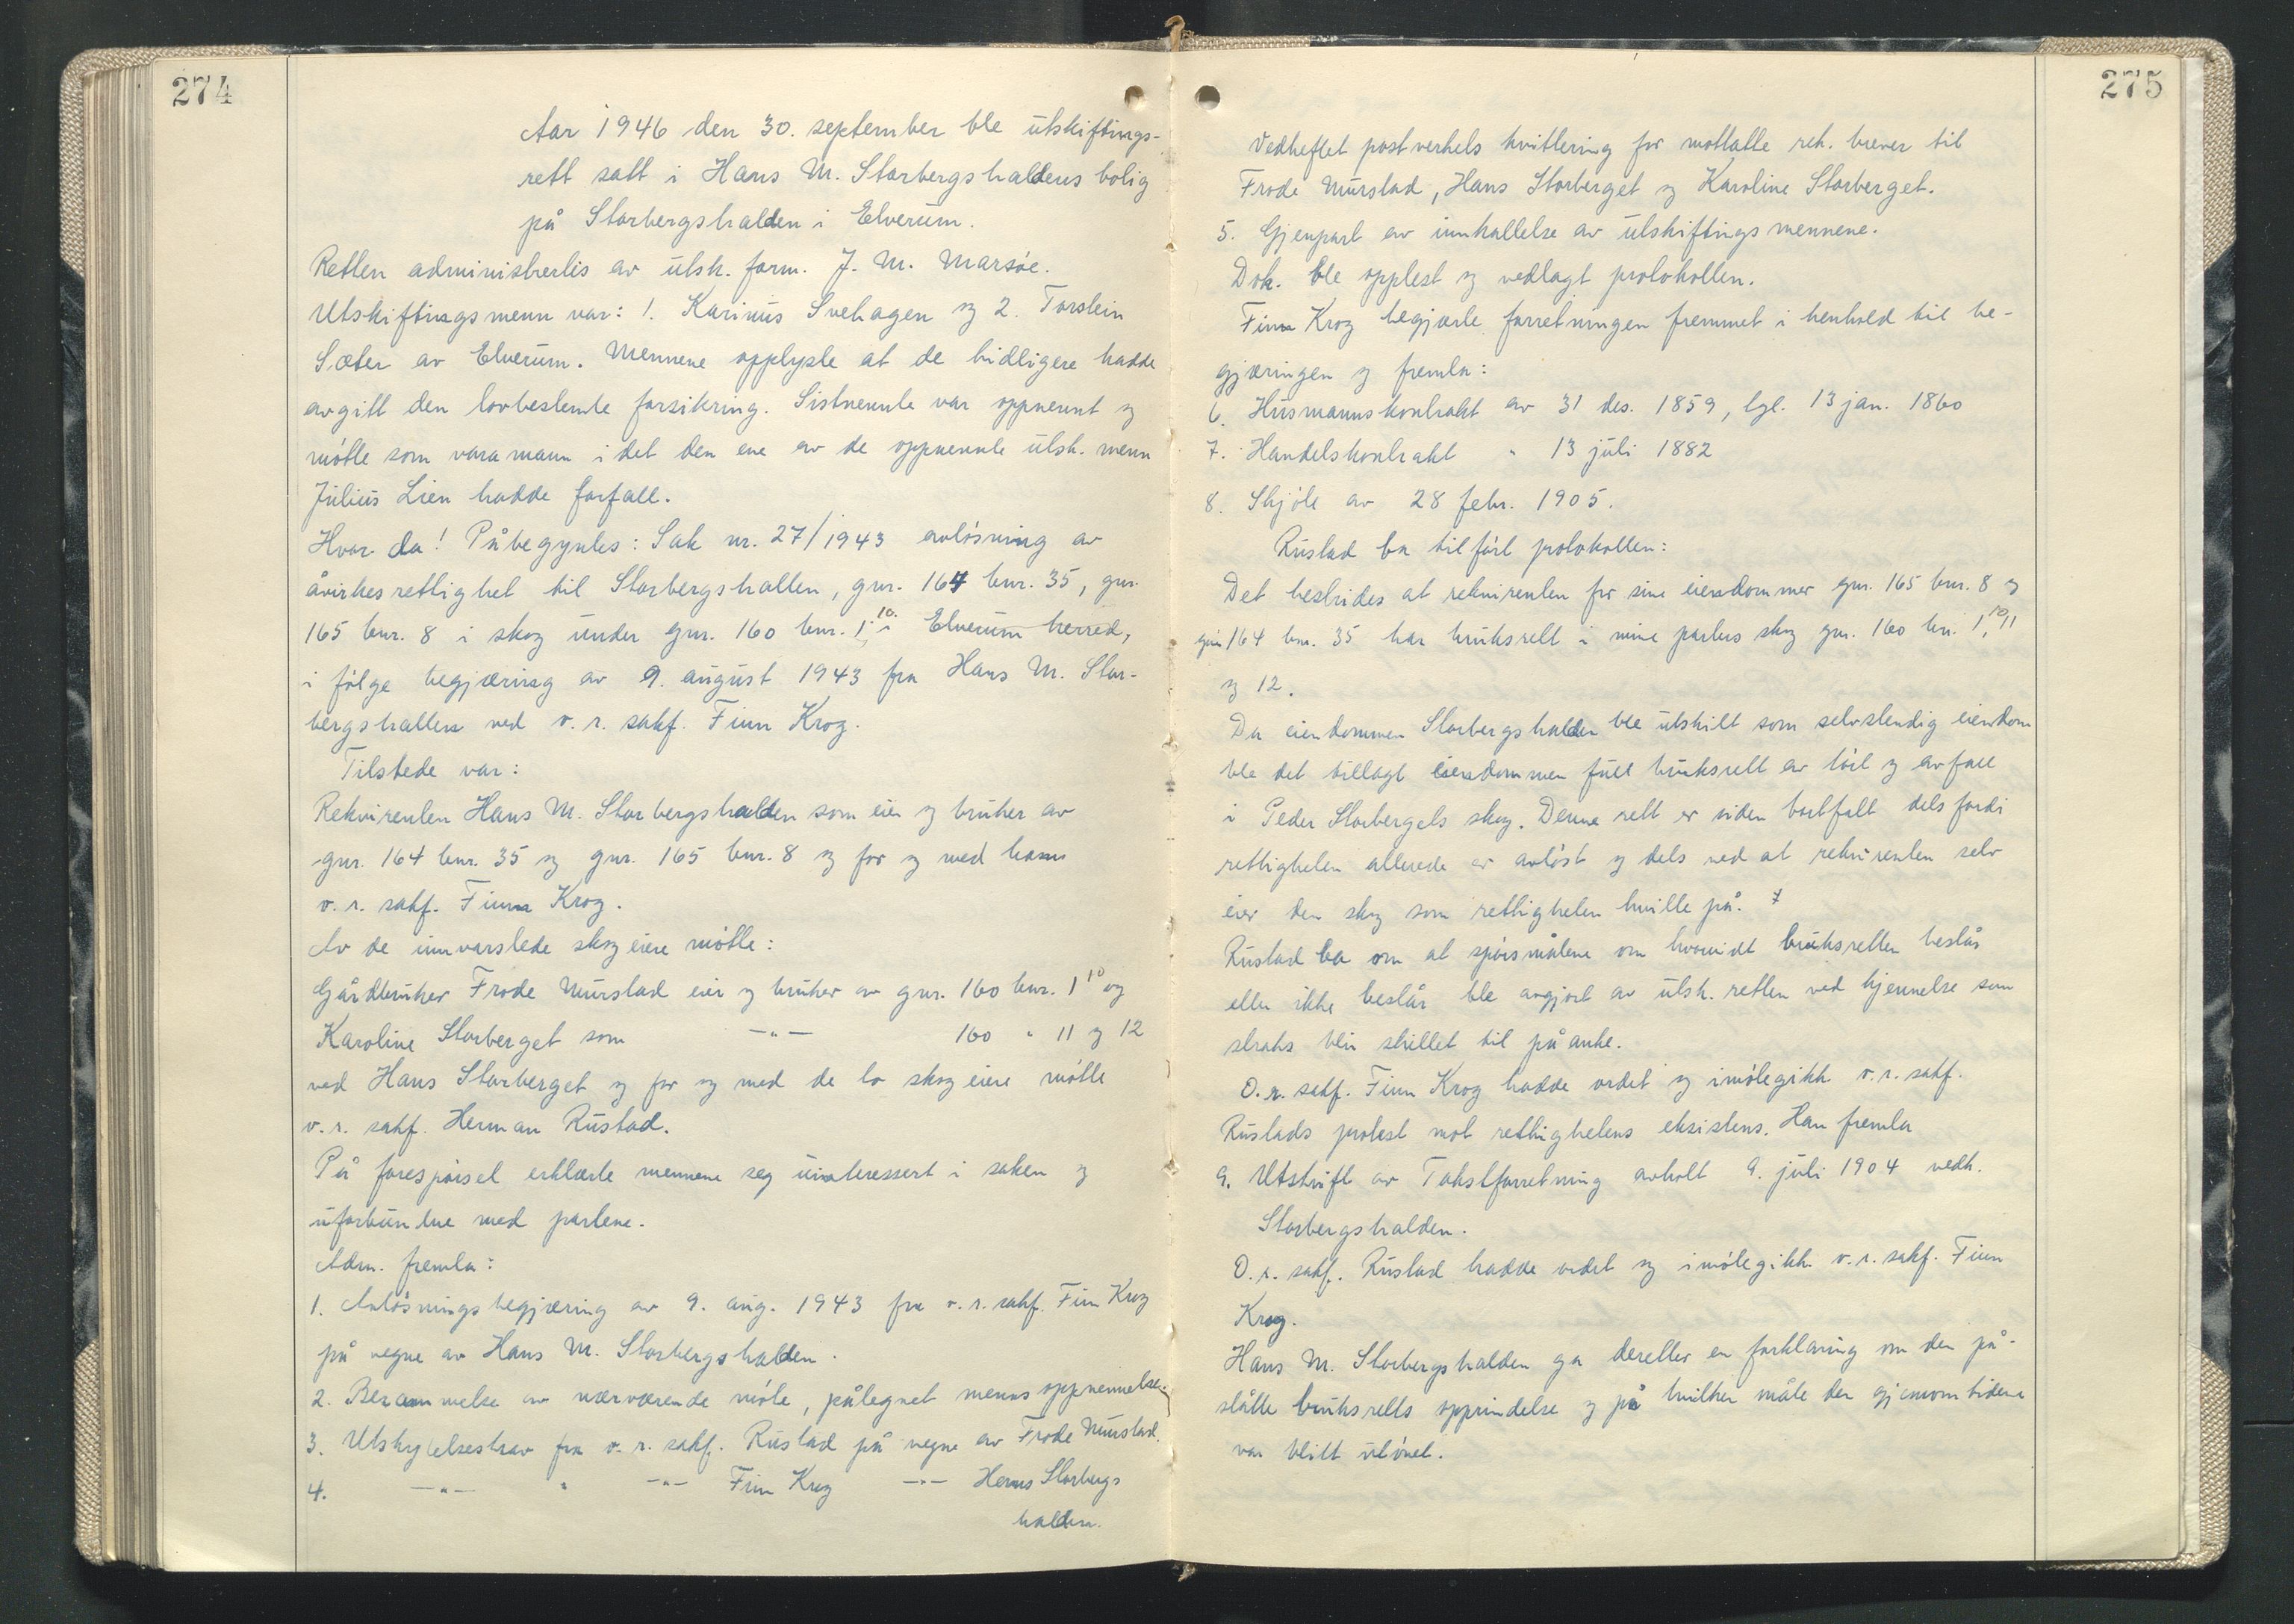 274
Aar 1946 den 30. september ble utskiftings-
rett satt i Hans M. Storbergshaldens bolig
på Storbergshalden i Elverum.
Retten administrertes av utsk. form. J. M. Marsøe.
Utskiftingsmenn var: 1. Karinus Svehagen og 2. Torstein
Sæter av Elverum. Mennene opplyste at de tidligere hadde
avgitt den lovbestemte forsikring. Sistnevnte var oppnevnt og
møtte som varamann i det den ene av de oppnevnte utsk. menn
Julius Lien hadde forfall.
Hvor da! Påbegyntes: Sak nr. 27/1943 avløsning av
åvirkesrettighet til Storbergshallen, gnr. 164 bnr. 35, gnr.
165 bnr. 8 i skog under gnr. 160 bnr. 1 10 i Elverum herred,
i følge begjæring av 9. august 1943 fra Hans M. Stor-
bergshallen ved o. r. sakf. Finn Krog.
Tilstede var:
Rekvirenten Hans M. Storbergshalden som eier og bruker av
gnr. 164 bnr. 35 og gnr. 165 bnr. 8 og for og med ham
o. r. sakf. Finn Krog.
Av de innvarslede skogeiere møtte:
Gårdbruker Frode Murstad eier og bruker av gnr. 160 bnr. 1 10 og
Karoline Storberget som —"— 160 " 11 og 12
ved Hans Storberget og for og med de to skogeiere møtte
o. r. sakf. Herman Rustad.
På forespørsel erklærte mennene seg uinteressert i saken og
uforbundne med partene.
Adm. fremla:
1. Avløsningsbegjæring av 9. aug. 1943 fra o. r. sakf. Finn Krog
på vegne av Hans M. Storbergshalden.
2. Berammelse av nærværende møte, påtegnet menns oppnevnelse.
3. Utskytelseskrav fra o. r. sakf. Rustad på vegne av Frode Murstad.
4. —"— " —"— Finn Krog —"— Hans Storbergs
halden.
275
Vedheftet postverkets kvittering for mottatte rek. brever til
Frode Murstad, Hans Storberget og Karoline Storberget.
5. Gjenpart av innkallelse av utskiftingsmennene.
Dok. ble opplest og vedlagt protokollen.
Finn Krog begjærte forretningen fremmet i henhold til be-
gjæringen og fremla:
6. Husmannskontrakt av 31 des. 1859, tgl. 13 jan. 1860
7. Handelskontrakt " 13 juli 1882
8. Skjøte av 28 febr. 1905.
Rustad ba tilført protokollen:
Det bestrides at rekvirenten for sine eiendommer gnr. 165 bnr. 8 og
gnr 164 bnr. 35 har bruksrett i mine parters skog gnr. 160 bn. 1, 10, 11
og 12.
Da eiendommen Storbergshalden ble utskilt som selvstendig eiendom
ble det tillagt eiendommen full bruksrett av tørt og avfall
i Peder Storbergets skog. Denne rett er siden bortfalt dels fordi
rettigheten allerede er avløst og dels ved at rekvirenten selv
eier den skog som rettigheten hvilte på.
Rustad ba om at spørsmålene om hvorvidt bruksretten består
eller ikke består ble avgjort av utsk. retten ved kjennelse som
straks blir stillet til påanke.
O. r. sakf. Finn Krog hadde ordet og imøtegikk o. r. sakf.
Rustads protest mot rettighetens eksistens. Han fremla
9. Utskrift av Takstforretning avholt 9. juli 1904 vedk.
Storbergshalden.
O. r. sakf. Rustad hadde ordet og imøtegikk o. r. sakf. Finn
Krog.
Hans M. Storbergshalden ga deretter en forklaring om den på-
ståtte bruksretts opprindelse og på hvilken måte den gjennom tidene
var blitt utøvet.